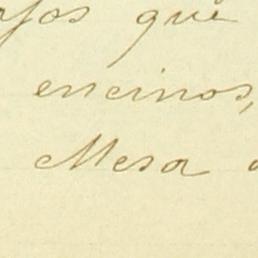 que
encinos,
Mesa